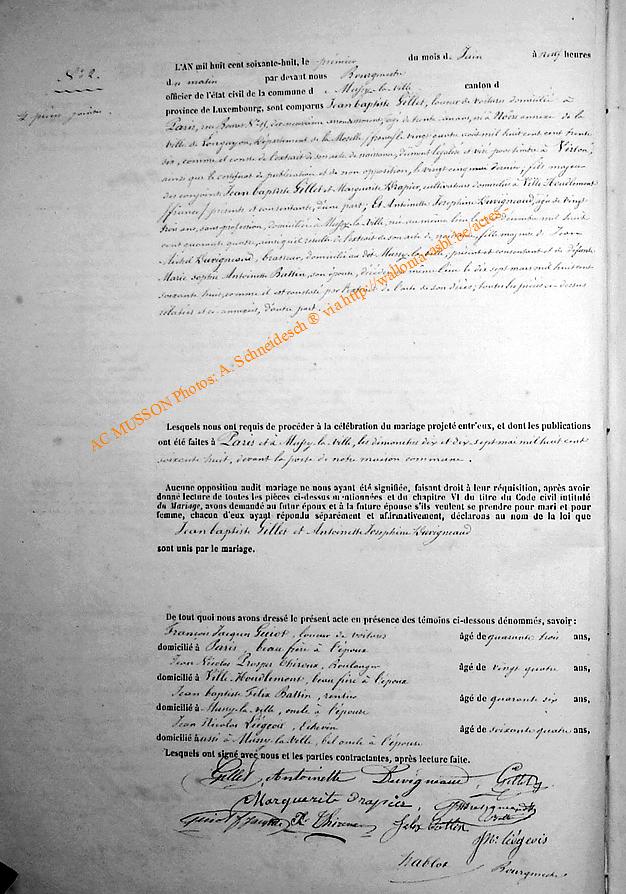 N° 2.
4 pièces jointes
L'AN mil huit cent soixante-huit, le premier du mois de Juin à neuf heures
du matin par devant nous Bourgmestre
officier de l'état civil de la commune de Mussy-la-ville canton d
province de Luxembourg, sont comparus Jean baptiste Gillet, loueur de voitures domicilié à
Paris, rue arrondissement, agé de trente ans, né à Noëre annexe de la
ville de Longuyon, Département de la Moselle /france/ le vingt quatre août mil huit cent trente
six, comme il conste de l'extrait de son acte de naissance, dûment légalisé et visé pour timbre à Virton,
ainsi que le certificat de publication et de non opposition, le vingt cinq mai dernier, fils majeur
des conjoints Jean baptiste Gillet et Marguerite Drapier, cultivateurs domiciliés à Ville Houdlemont
/france/ présents et consentants, d'une part; Et Antoinette Josephine Duvigneaud, agée de vingt
trois ans, sans profession, domiciliée à Mussy-la-Ville, née au même lieu le décembre mil huit
cent quarante quatre, ainsi qu'il résulte de l'extrait de son acte de naissance, fille majeure de Jean
Michel Duvigneaud, brasseur, domicilié au dit Mussy-la-ville, présent et consentant et de défunte
Marie Sophie Antoinette Battin, son épouse, décédée au même lieu le dix sept mars mil huit cent
soixante huit, comme il est constaté par l'extrait de l'acte de son décès; toutes les pièces ci-dessus
relatées et ci-annexées, d'autre part.
AC MUSSON Photos: A. Schneidesch ® via http://wallonia-asbl.be/actes-
Lesquels nous ont requis de procéder à la célébration du mariage projeté entr'eux, et dont les publications
ont été faites à Paris et à Mussy-la-Ville, les dimanches dix et dix sept mai mil huit cent
soixante huit, devant la porte de notre maison commune.
Aucune opposition audit mariage ne nous ayant été signifiée, faisant droit à leur réquisition, après avoir
donné lecture de toutes les pièces ci-dessus mentionnées et du chapitre VI du titre du Code civil intitulé
du Mariage, avons demandé au futur époux et à la future épouse s'ils veulent se prendre pour mari et pour
femme, chacun d'eux ayant répondu séparément et affirmativement, déclarons au nom de la loi que
Jean baptiste Gillet et Antoinette Josephine Duvigneaud
sont unis par le mariage.
De tout quoi nous avons dressé le présent acte en présence des témoins ci-dessous dénommés, savoir:
François Jacques Guiot, loueur de voitures âgé de quarante trois ans,
domicilié à Paris beau frère à l'époux
Jean Nicolas Prosper Thiroux, Boulanger âgé de vingt quatre ans,
domicilié à Ville-Houdlemont, beau frère à l'époux
Jean baptiste Felix Battin, rentier âgé de quarante six ans,
domicilié à Mussy-la-ville, oncle à l'épouse
Jean Nicolas Liégeois, Echevin âgé de soixante quatre ans,
domicilié aussi à Mussy-la-Ville, bel oncle à l'épouse
Lesquels ont signé avec nous et les parties contractantes, après lecture faite.
Gillet, Antoinette Duvigneaud, Gillet
Marguerite Drapier,
Guiot françois Thiroux Felix Battin JN. Liégeois
Hablot Bourgmestre